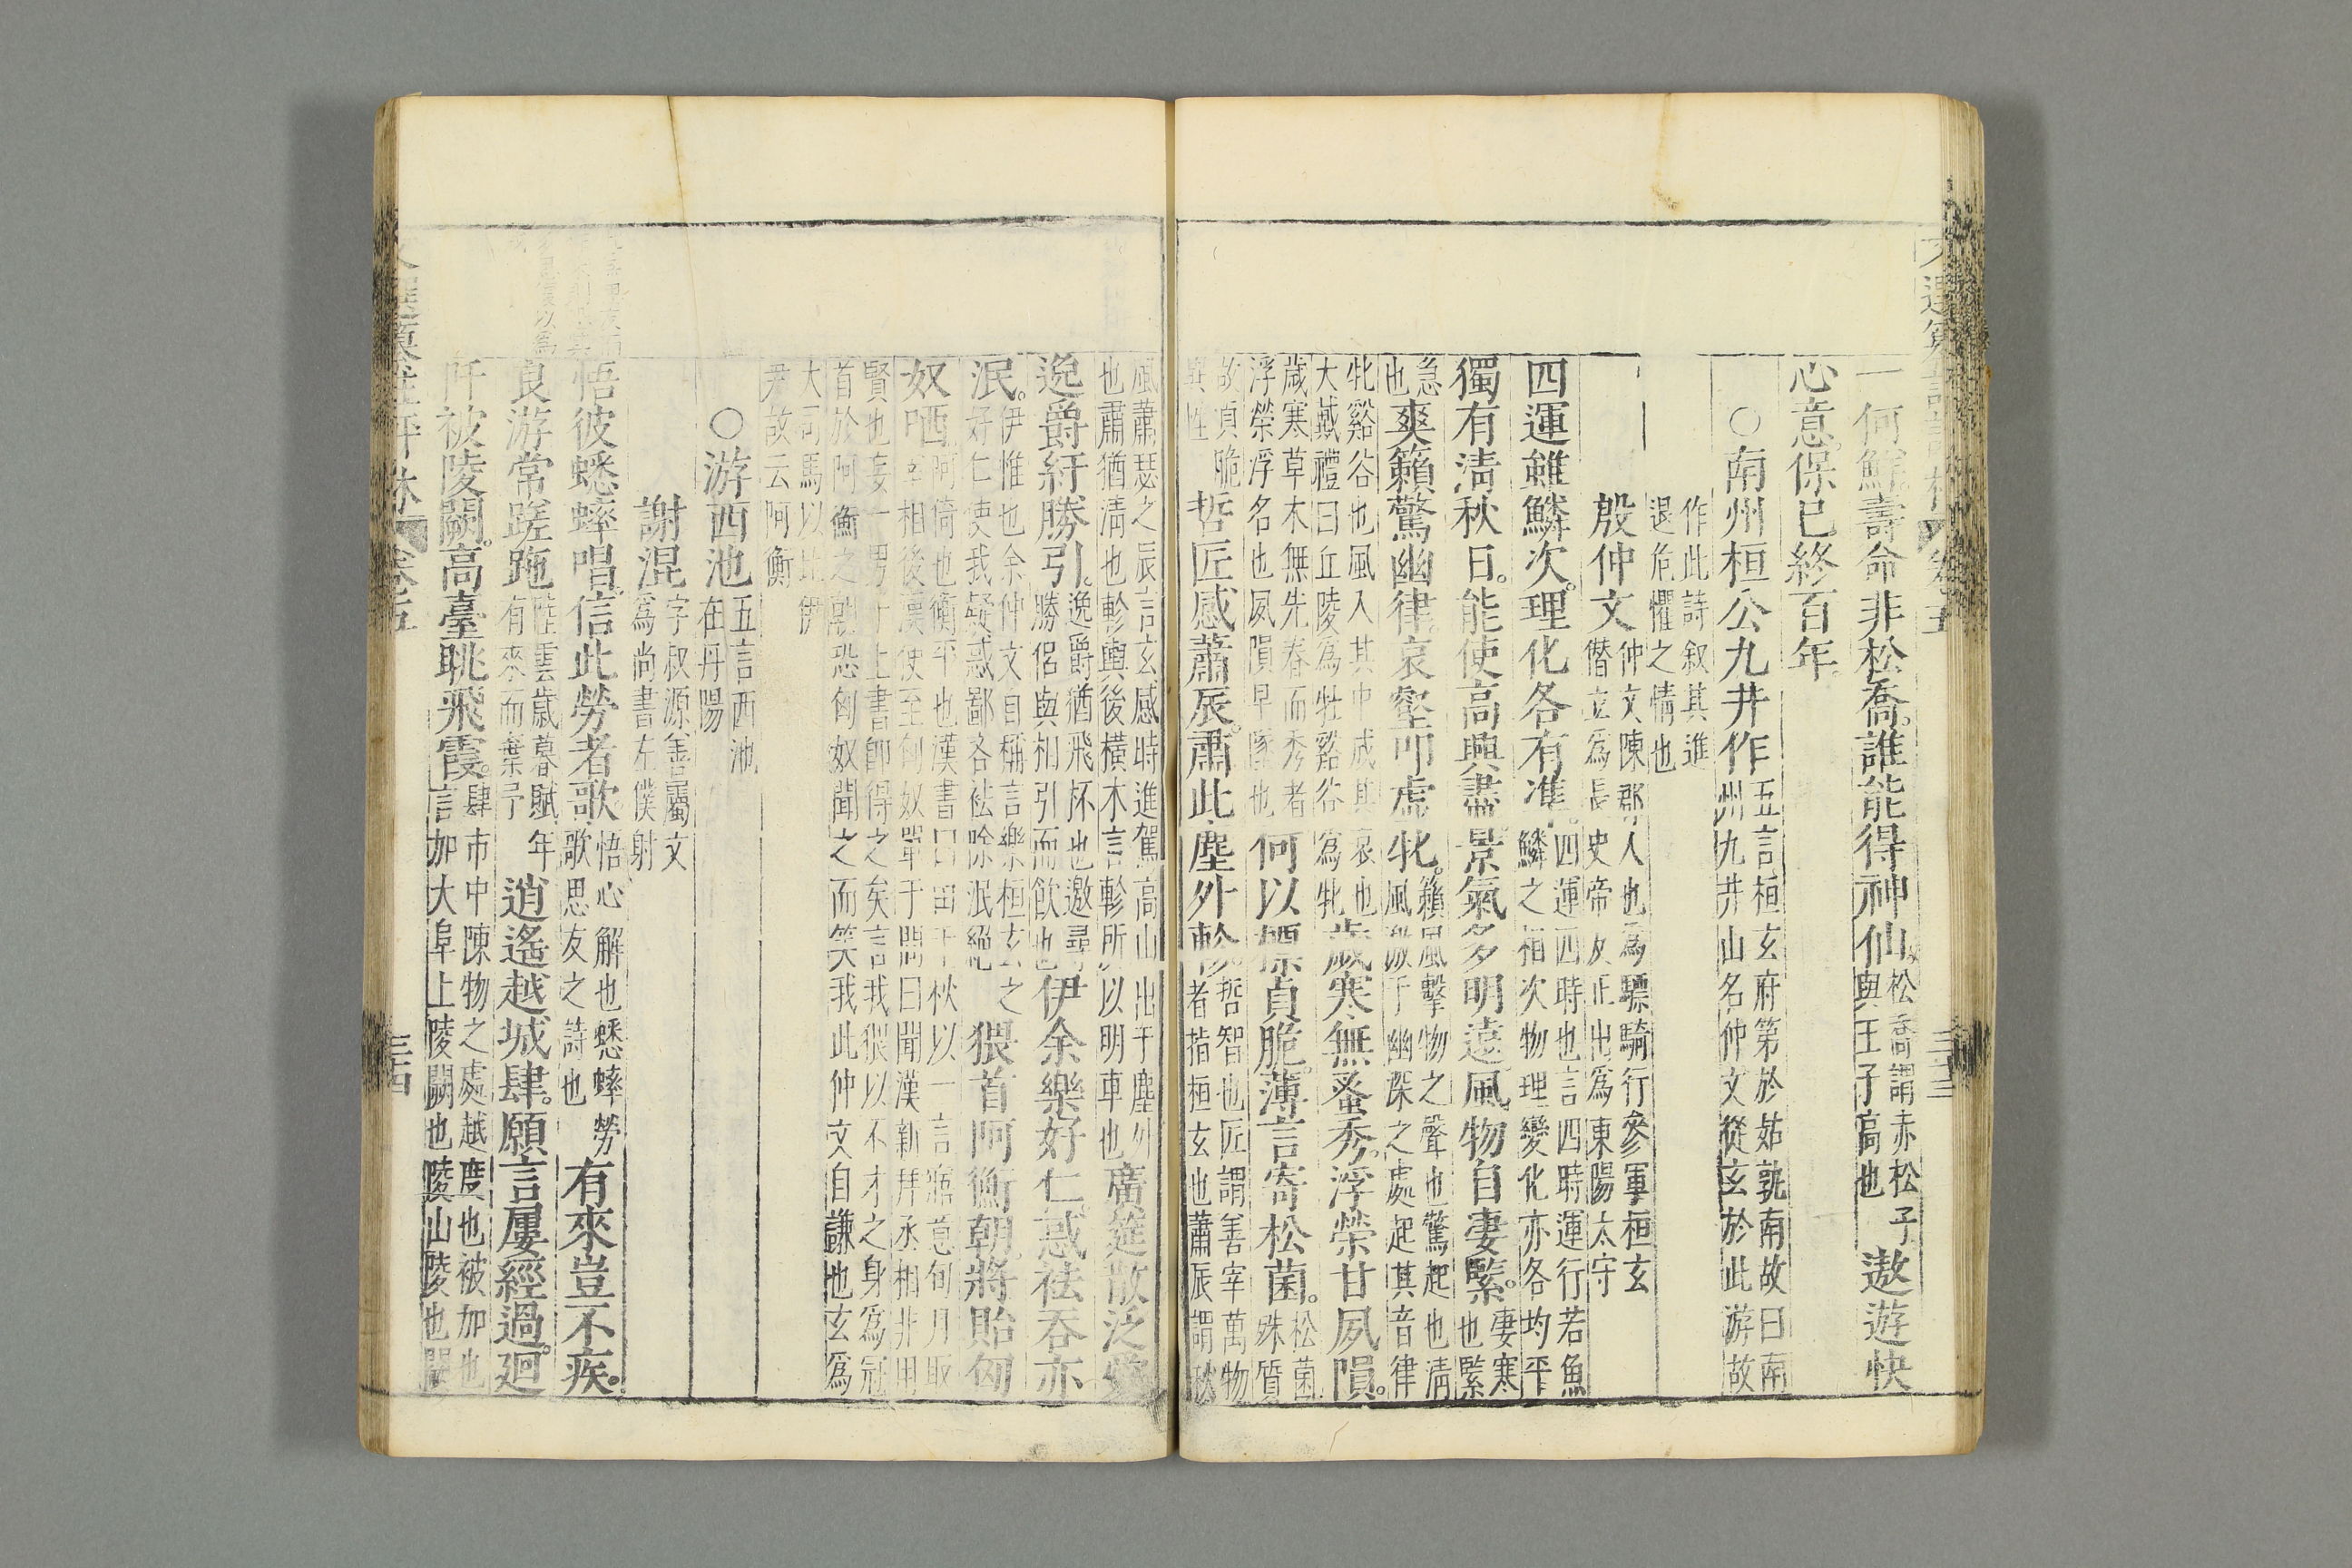 一何鮮壽命非松喬。誰能得神仙。松喬謂赤松子與王子高也遨遊快
心意。保已終百年。
〇南州桓公九井作五言桓玄府第於姑孰南故曰南州九井山名仲文從玄於此游故
作此詩叙其進退危懼之情也
殷仲文仲文陳郡人也為驃騎行參軍桓玄僭立爲長史帝反正出爲東陽太守
四運雖鱗次。理化各有準四運四時也言四時運行若魚鱗之相次物理變化亦各均平
獨有清秋日。能使高興盡景氣多明遠風物自凄緊。凄寒也緊
急也爽籟驚幽律哀壑叩虛牝。籟風擊物之聲也驚起也清風激于幽深之處起其音律
牝谿谷也風入其中成其哀也大戴禮曰丘陵爲牡谿谷為牝歲寒無蚤秀。浮榮甘夙隕。
歲寒草木無先春而秀者浮榮浮名也夙隕早墜也何以標貞脆。薄言寄松菌。松菌殊質
故貞脆異性哲匠感蕭辰。肅此塵外軫哲智也匠謂善宰萬物者指桓玄也蕭辰謂秋
風蕭瑟之辰言玄感時進駕高山出于塵外也肅猶清也軫輿後橫木言軫所以明車也廣筵散泛愛
逸爵紆勝引。逸爵猶飛杯也邀尋勝侶與相引而飲也伊余樂好仁惑祛吞亦
泯。伊惟也余仲文自稱言樂桓玄之好仁使我疑惑鄙吝祛除泯絕猥首阿衡朝將貽匈
奴哂阿倚也衡平也漢書曰田千秋以一言寤意旬月取相後漢使至匈奴單于問曰聞漢新拜丞相非用
賢也妄一男子上書卽得之矣言我猥以不才之身為冠首於阿衡之朝恐匈奴聞之而笑我此仲文自謙也玄爲
大司馬以比伊尹故云阿衡
〇游西池五言西池在丹陽
謝混字叔源善屬文爲尚書左僕射
悟彼蟋蟀唱信此勞者歌悟心解也蟋蟀勞歌思友之詩也有來豈不疾。
良游常蹉跎陸雲歲暮賦年有來而棄予逍遙越城肆。願言屢經過。廻
阡被陵闕。高臺眺飛霞。肆市中陳物之處越度也被加也言加大阜上陵闕也陵山陵也闕
卷五
三十三
卷五
三十四